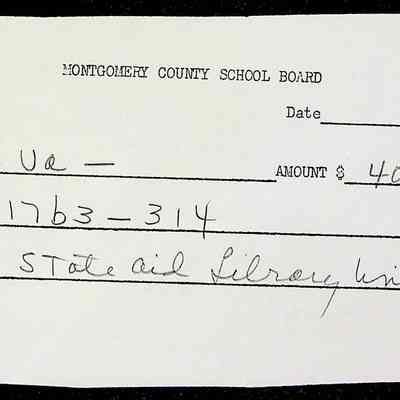 MONTGOMERY COUNTY SCHOOL BOARD
Date
Va — AMOUNT $ 40
1763-314
State aid Library